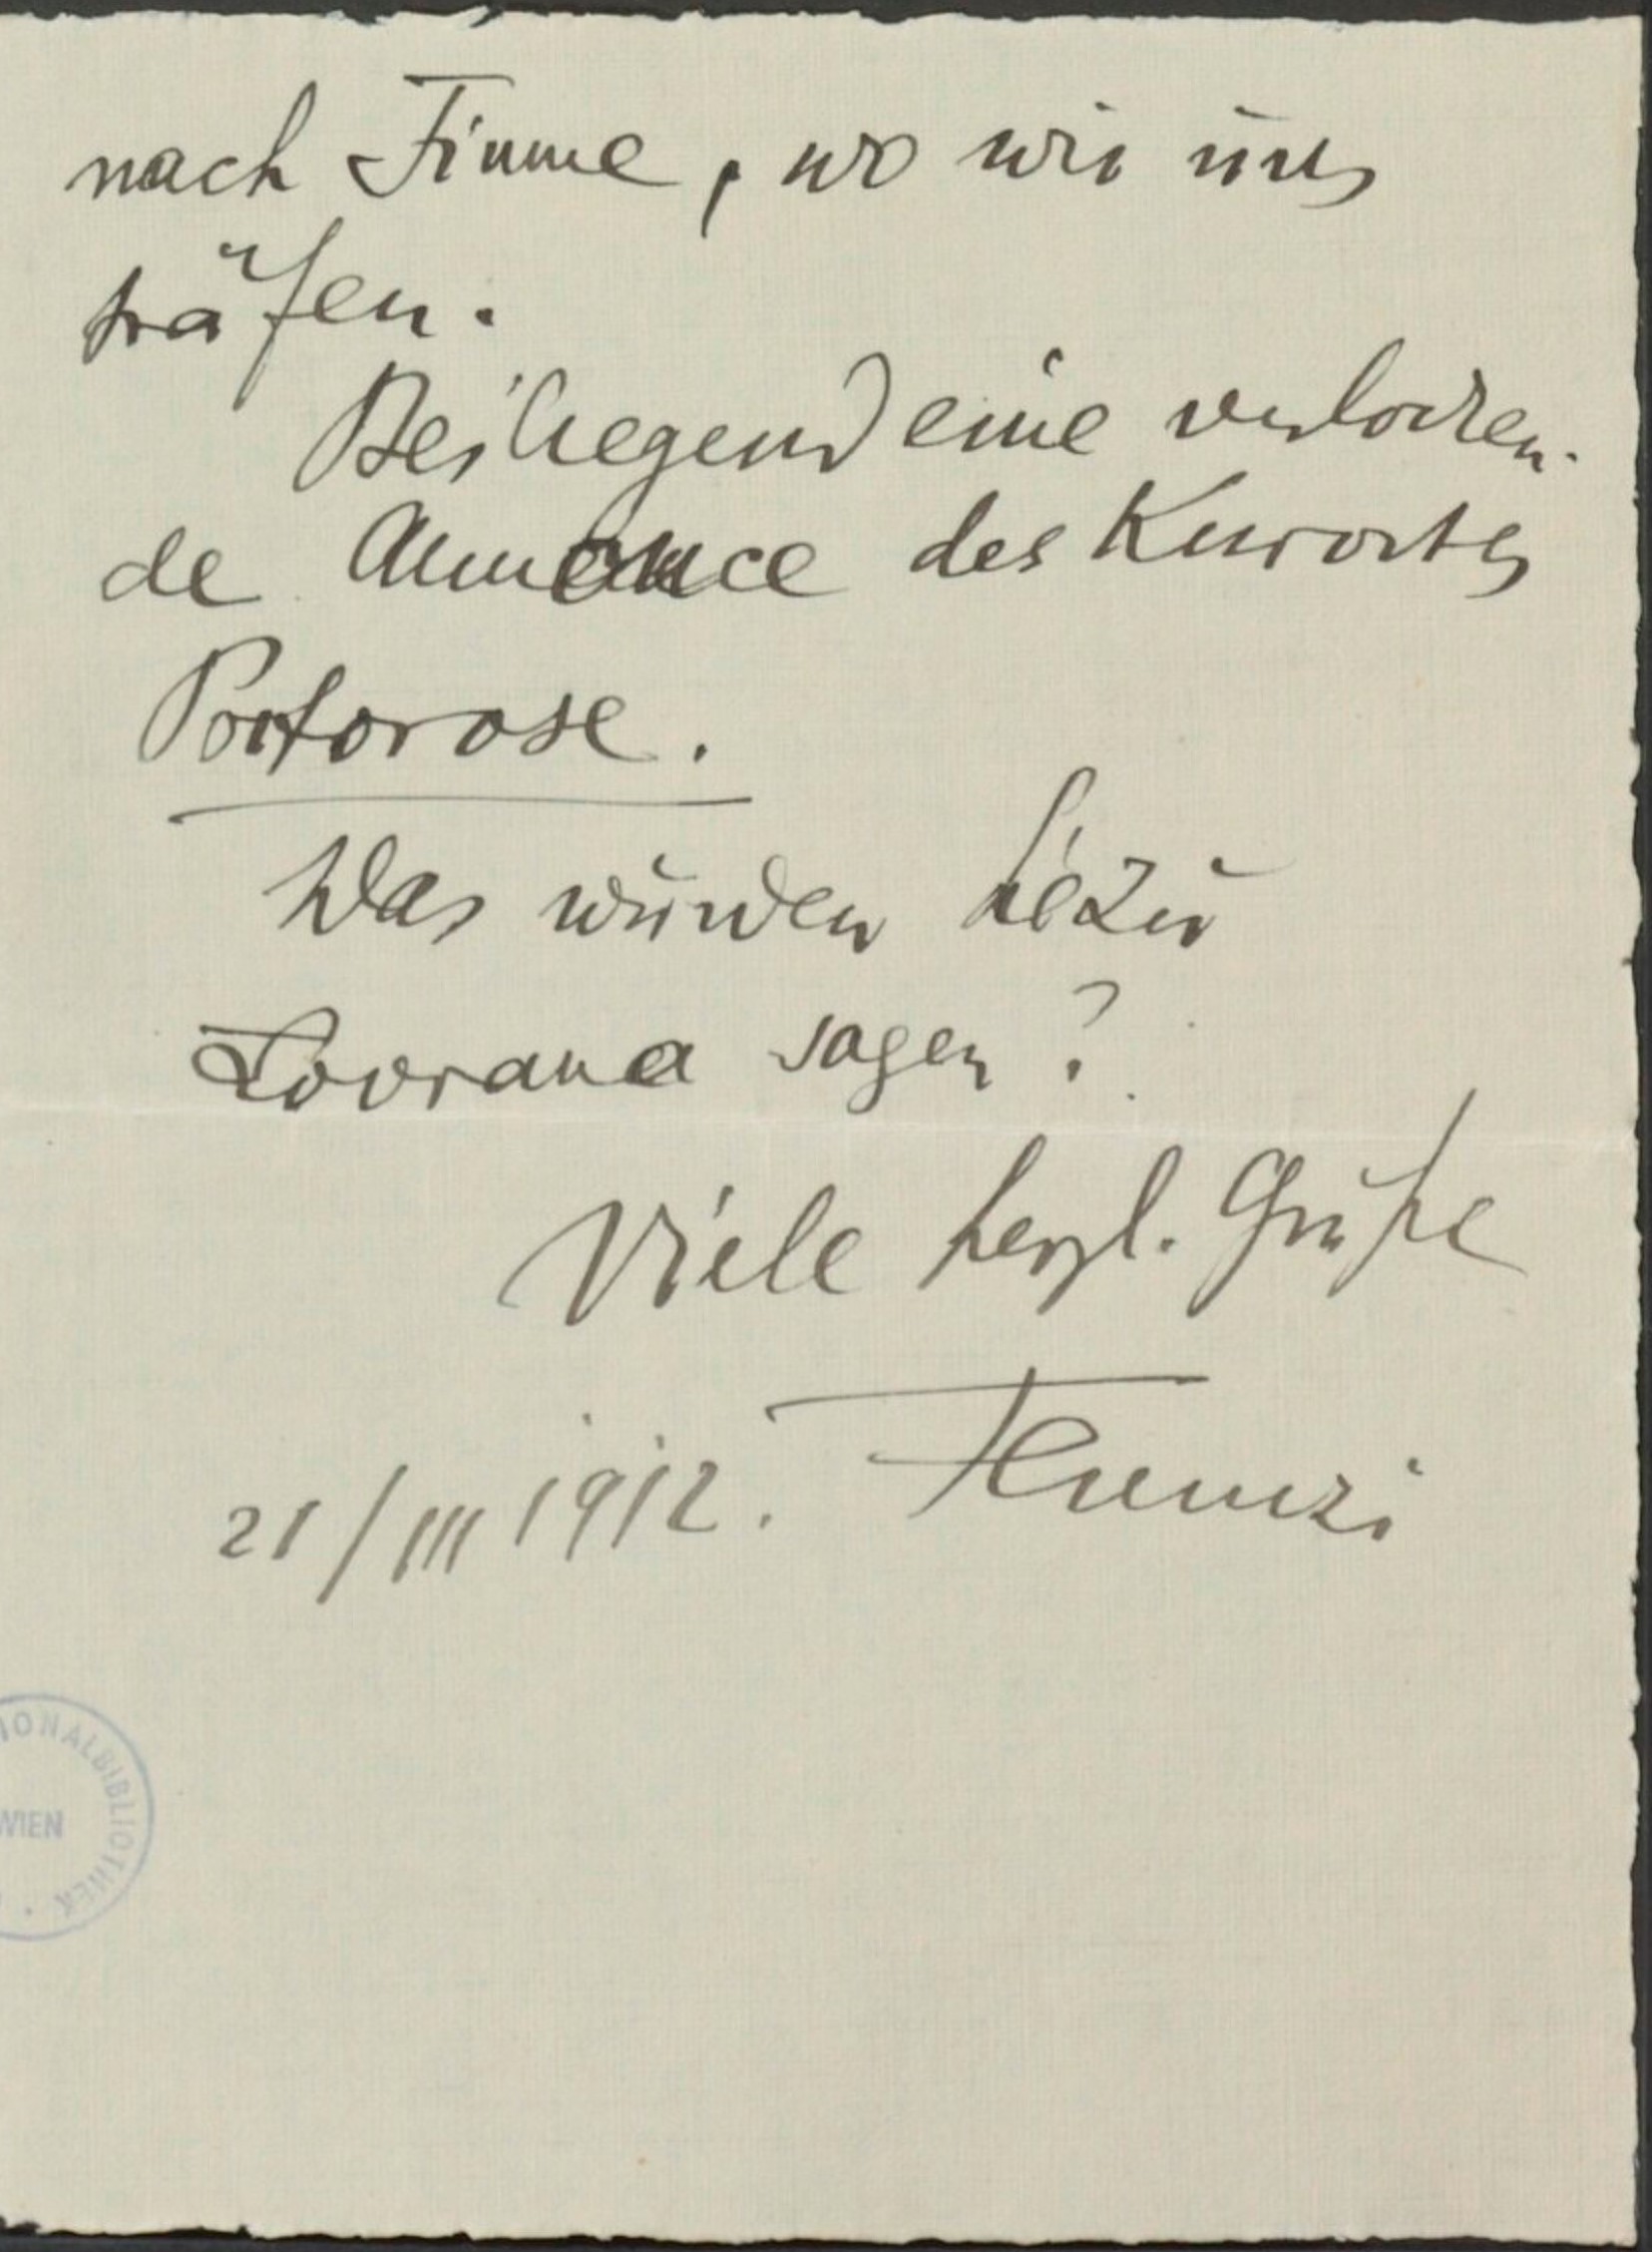 nach Fiume, wo wir uns
träfen.
Beiliegend eine verlocken-
de Annonce des Kurortes
Portorose.
Was würden Sie zu
Lovrana sagen?
Viele herzl. Grüße
21/III 1912.
IONALBIBLIOTHEK
WIEN